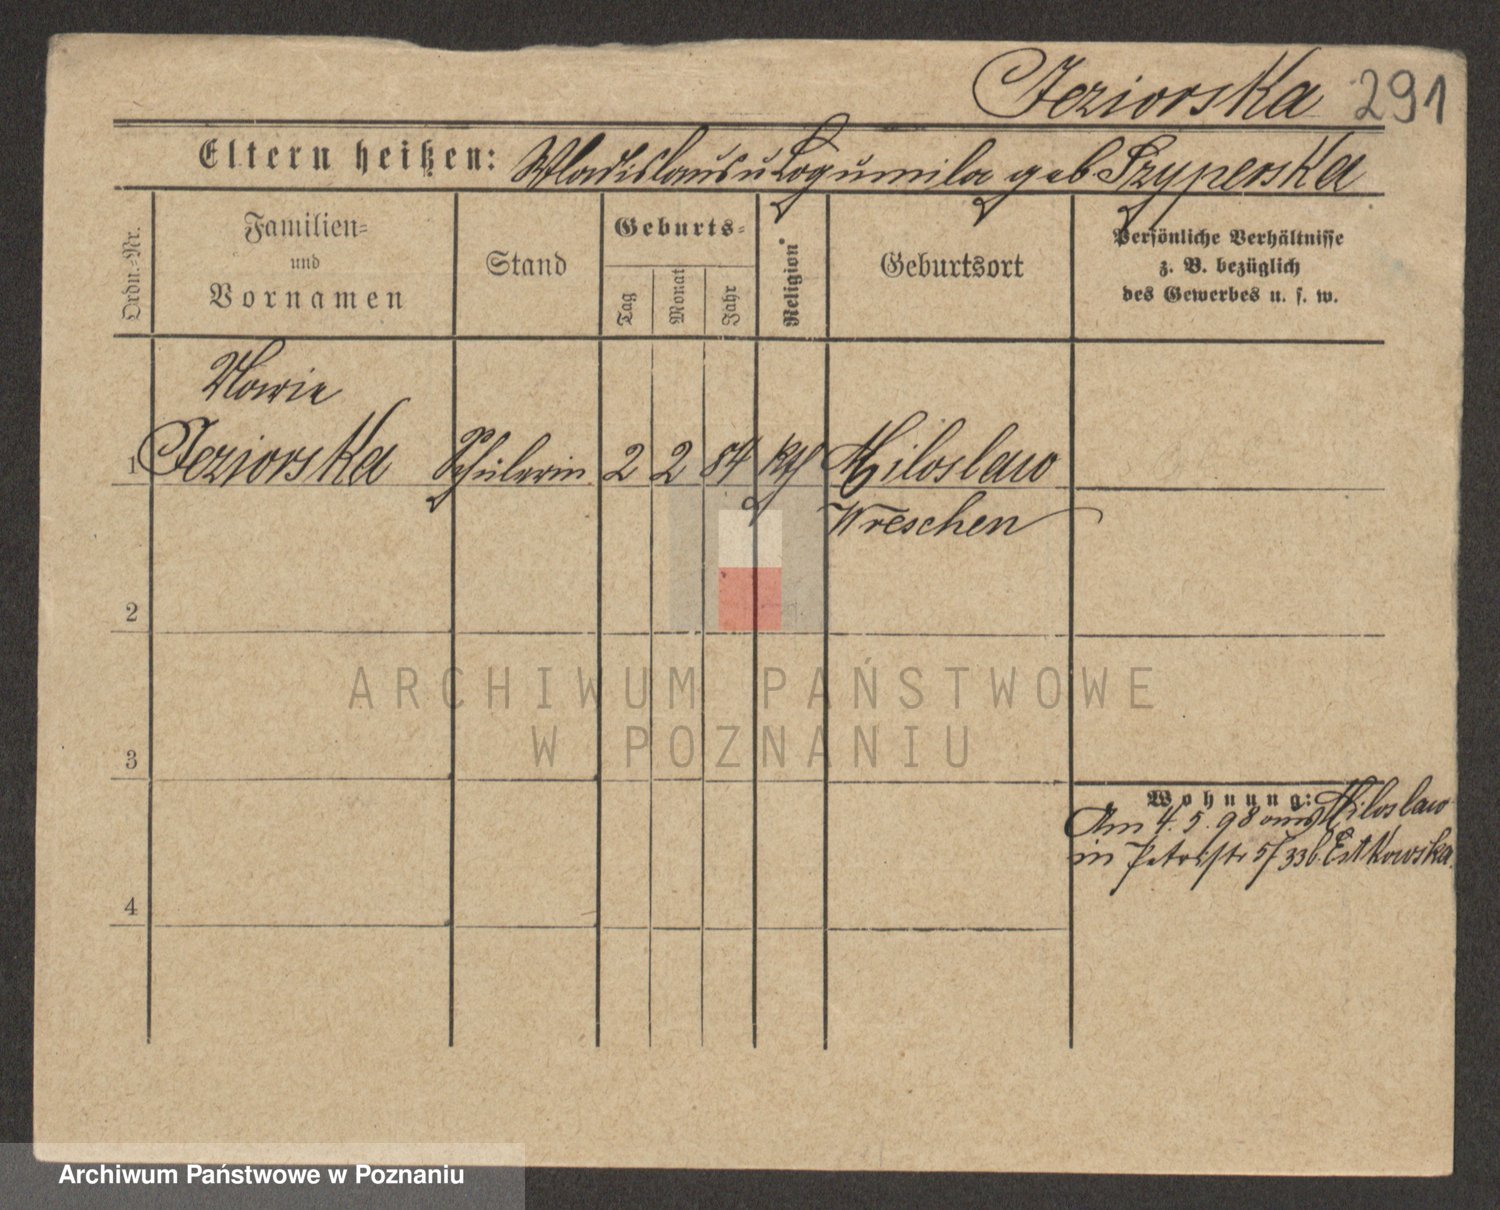 Jeziorska 291
Eltern heißen: Wladislaus u Bogumila geb Szyperska
Ordn.-Nr.
Familien- und Vornamen
Stand
Geburts-
Tag
Monat
Jahr
Religion
Geburtsort
Persönliche Verhältnisse
z. B. bezüglich
des Gewerbes u. s. w.
Marie
1 Jeziorska Schülerin 2 2 84 kth Miloslaw
Wreschen
2
ARCHIWUM PAŃSTWOWE
W POZNANIU
3
Wohnung: Miloslaw
Am 4. 5. 98 aus
in Petristr 5/33 b. Estkowska
4
Archiwum Państwowe w Poznaniu